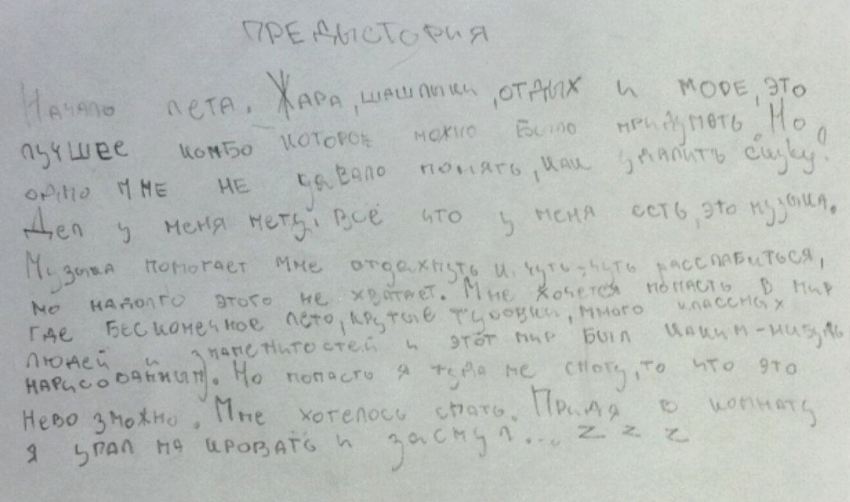 ПРЕДЫСТОРИЯ
Начало лета. Жара, шашлыки, отдых и море, это
лучшее комбо которое можно было придумать. Но
одно мне не давало понять, как удалить скуку?
Дел у меня нету. Всё что у меня есть, это музыка.
Музыка помогает мне отдахнуть и чуть-чуть расслабиться,
но надолго этого не хватает. Мне хочется попасть в мир
где бесконечное лето, крутые тусовки, много классных
людей и знаменитостей и этот мир был каким-нибудь
нарисованным. Но попасть я туда не смогу, то что это
невозможно. Мне хотелось спать. Придя в комнату
я упал на кровать и заснул... z z z